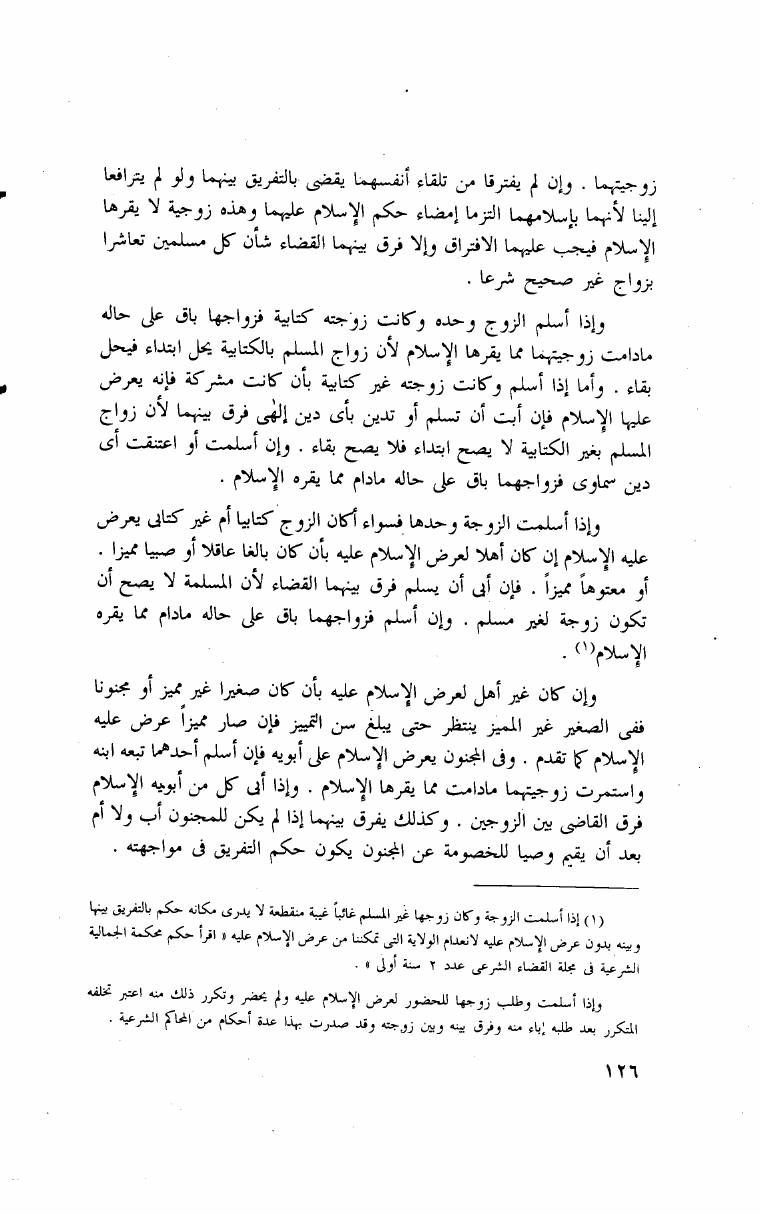 زوجيتهما . وإن لم يفترقا من تلقاء أنفسهما يقضى بالتفريق بينهما ولو لم يترافعا
إلينا لأنهما بإسلامهما التزما إمضاء حكم الإسلام عليهما وهذه زوجية لا يقرها
الإسلام فيجب عليهما الافتراق وإلا فرق بينهما القضاء شأن كل مسلمين تعاشرا
بزواج غير صحيح شرعا .
وإذا أسلم الزوج وحده وكانت زوجته كتابية فزواجها باق على حاله
مادامت زوجيتهما مما يقرها الإسلام لأن زواج المسلم بالكتابية يحل ابتداء فيحل
بقاء . وأما إذا أسلم وكانت زوجته غير كتابية بأن كانت مشركة فإنه يعرض
عليها الإسلام فإن أبت أن تسلم أو تدين بأى دين إلهى فرق بينهما لأن زواج
المسلم بغير الكتابية لا يصح ابتداء فلا يصح بقاء . وإن أسلمت أو اعتنقت أى
دين سماوى فزواجهما باق على حاله مادام مما يقره الإسلام .
وإذا أسلمت الزوجة وحدها فسواء أكان الزوج كتابيا أم غير كتابى يعرض
عليه الإسلام إن كان أهلا لعرض الإسلام عليه بأن كان بالغا عاقلا أو صبيا مميزا .
أو معتوهاً مميزاً . فإن أبى أن يسلم فرق بينهما القضاء لأن المسلمة لا يصح أن
تكون زوجة لغير مسلم . وإن أسلم فزواجهما باق على حاله مادام مما يقره
الإسلام(١) .
وإن كان غير أهل لعرض الإسلام عليه بأن كان صغيرا غير مميز أو مجنونا
ففى الصغير غير المميز ينتظر حتى يبلغ سن التمييز فإن صار مميزاً عرض عليه
الإسلام كما تقدم . وفى المجنون يعرض الإسلام على أبويه فإن أسلم أحدهما تبعه ابنه
واستمرت زوجيتهما مادامت مما يقرها الإسلام . وإذا أبى كل من أبويه الإسلام
فرق القاضى بين الزوجين . وكذلك يفرق بينهما إذا لم يكن للمجنون أب ولا أم
بعد أن يقيم وصيا للخصومة عن المجنون يكون حكم التفريق فى مواجهته .
(١) إذا أسلمت الزوجة وكان زوجها غير المسلم غائباً غيبة منقطعة لا يدرى مكانه حكم بالتفريق بينها
وبينه بدون عرض الإسلام عليه لانعدام الولاية التى تمكننا من عرض الإسلام عليه « اقرأ حكم محكمة الجمالية
الشرعية فى مجلة القضاء الشرعى عدد ٢ سنة أولى » .
وإذا أسلمت وطلب زوجها للحضور لعرض الإسلام عليه ولم يحضر وتكرر ذلك منه اعتبر تخلفه
المتكرر بعد طلبه إباء منه وفرق بينه وبين زوجته وقد صدرت بهذا عدة أحكام من المحاكم الشرعية .
١٢٦